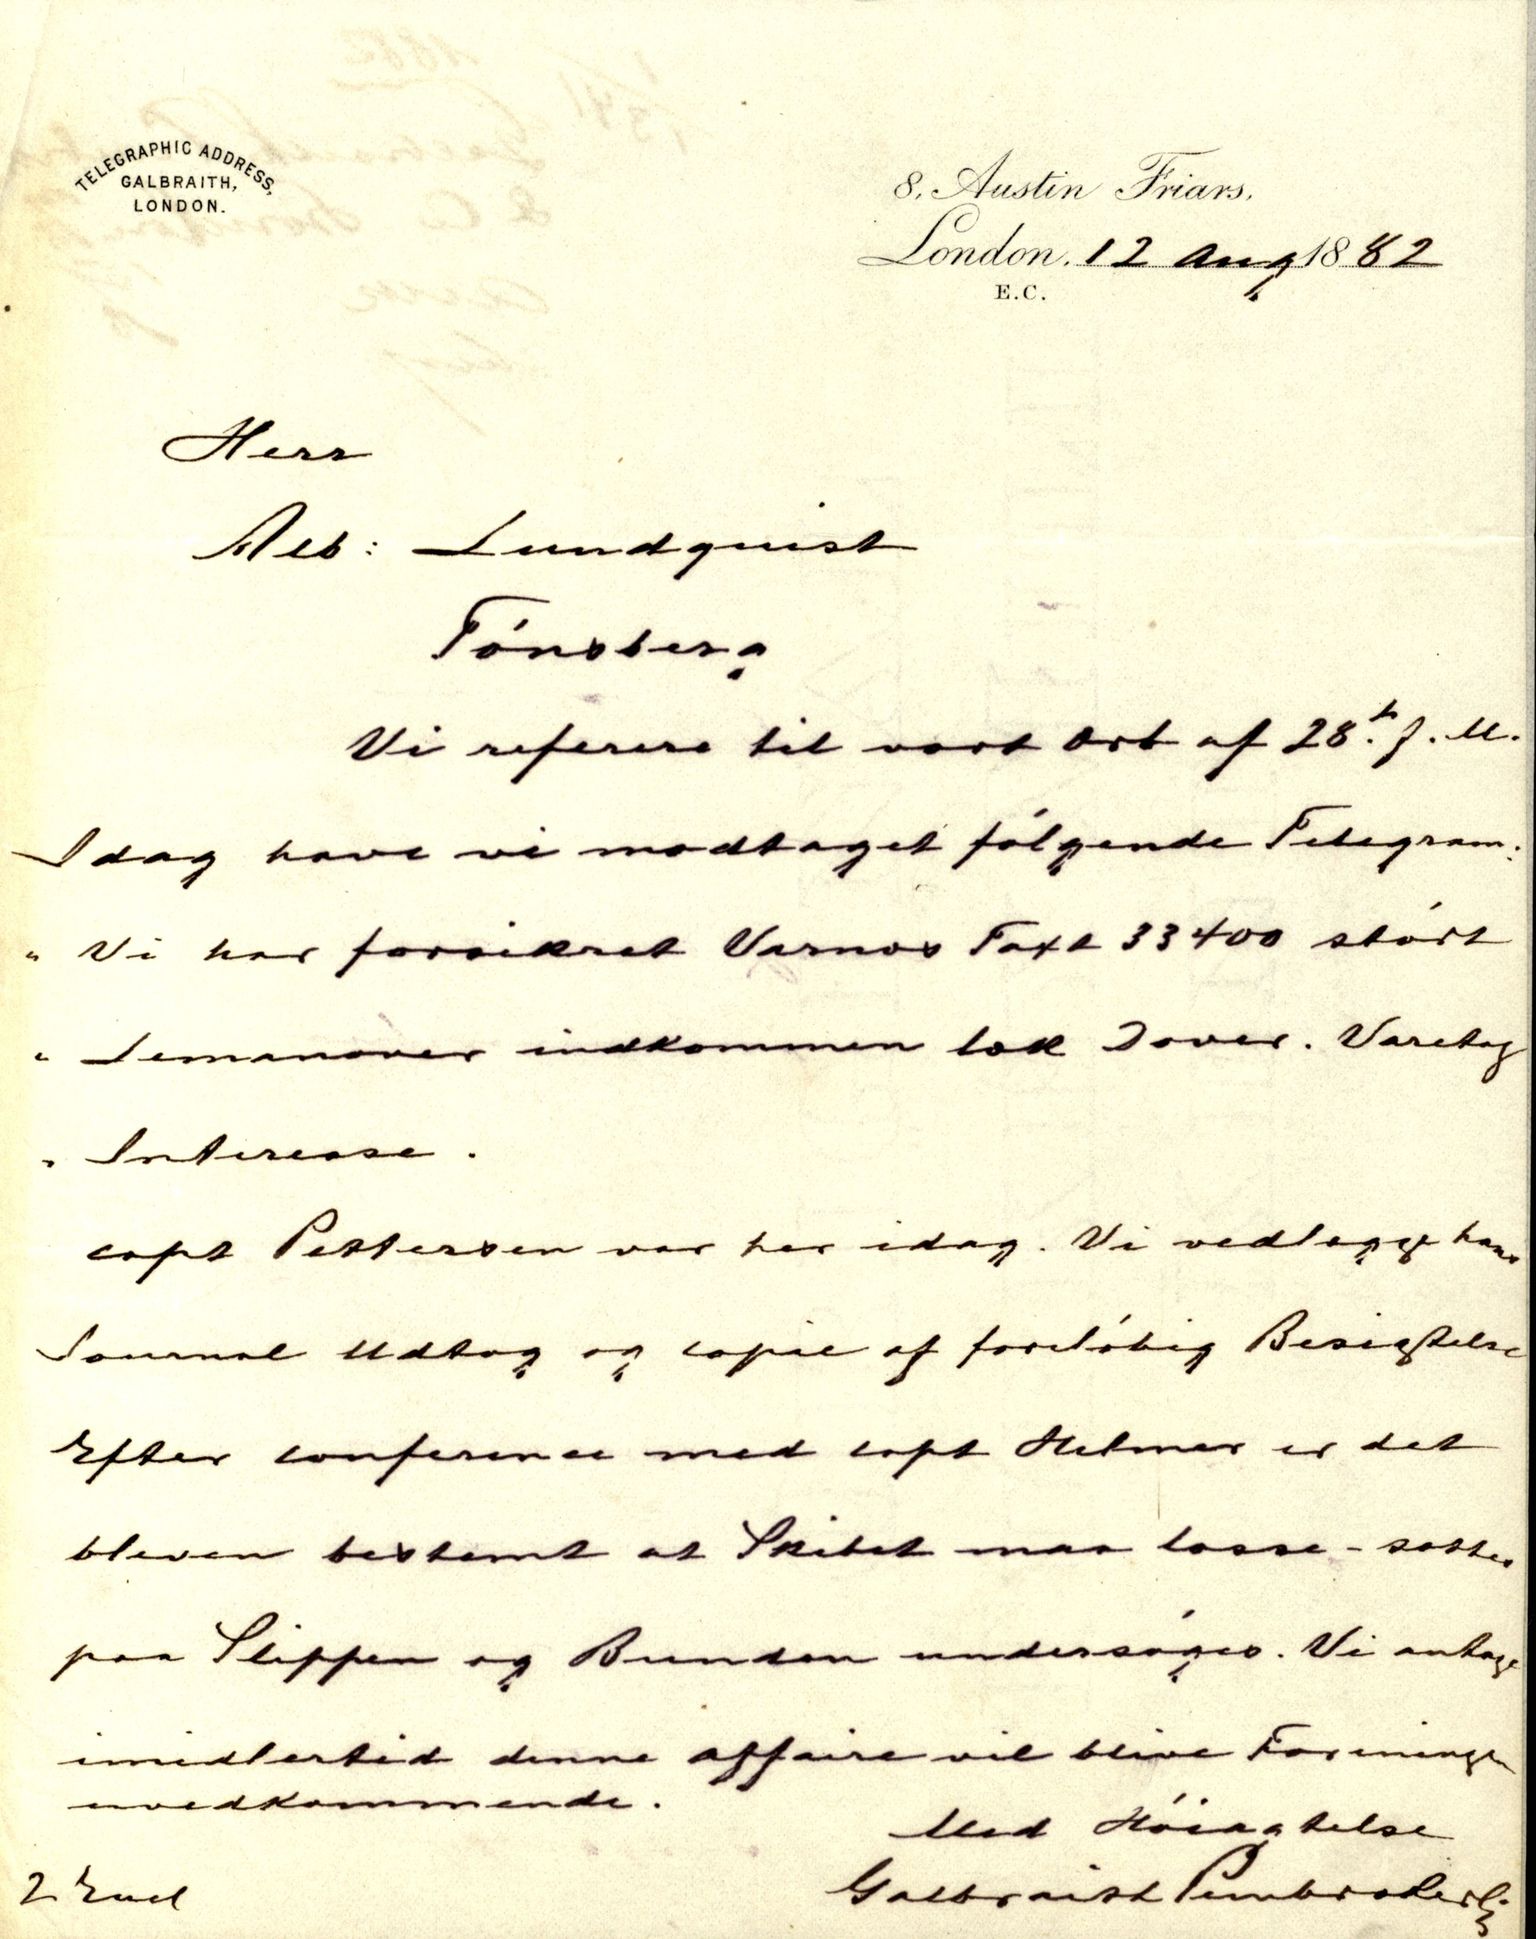 TELEGRAPHIC ADDRESS,
GALBRAITH,
LONDON.
8, Austin Friars,
London, 12 Aug 1882
E.C.
Herr
Alb: Lundquist
Tónsberg
Vi referere til vort Brt af 28.h f. M.
Idag have vi modtaget fólgende Telegram:
" Vi har forsikret Varnos Faxt 33400 stórt
" Lemanover indkommen læk Dover. Varetag
" Interesse.
capt Pettersen var her idag. Vi vedlægge hans
Journal Udtog og copie af forelóbig Besigtelse
Efter conference med capt Helmer er det
bleven bestemt at Skibet maa losse - sættes
paa Slippen og Bunden undersóges. Vi antage
imidlertid denne affaire vil blive Foreningen
uvedkommende.
Med Hóiagtelse
Galbraith Pembroke & Co
2 Encl